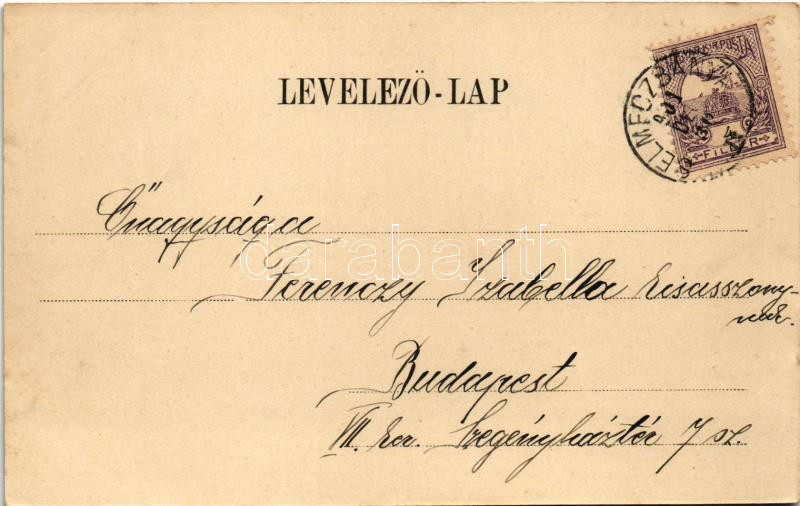 LEVELEZŐ-LAP
MAGYAR KIR. POSTA
SELMECZBÁNYA
901
4
FILLÉR
Őnagysága
Ferenczy Izabella kisasszony-
nak.
Budapest
VII. ker. Szegényháztér 7 sz.
darabanth